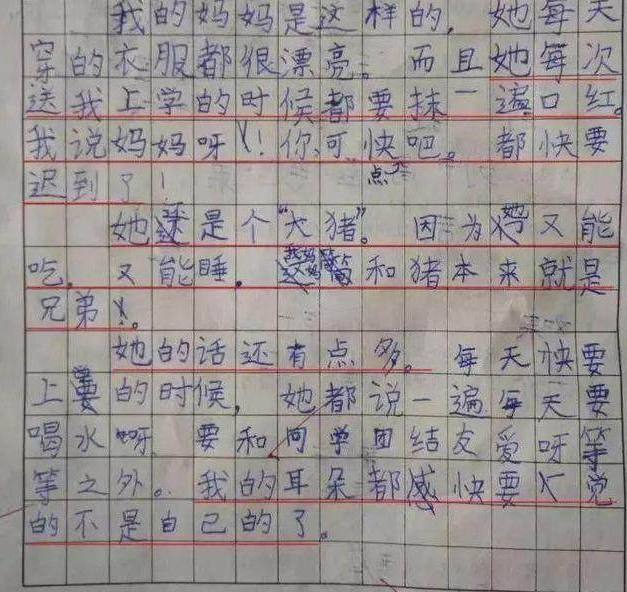 我的妈妈是这样的，她每天
穿的衣服都很漂亮。而且她每次
送我上学的时候都要抹一遍口红。
我说妈妈呀！你可快点吧。都快要
迟到了！
她还是个“大猪”。因为她又能
吃，又能睡。我妈妈和猪本来就是
兄弟。
她的话还有点多。每天快要
上学的时候，她都说一遍每天要
喝水呀要和同学团结友爱呀等
等之外。我的耳朵都感快要觉
的不是自己的了。